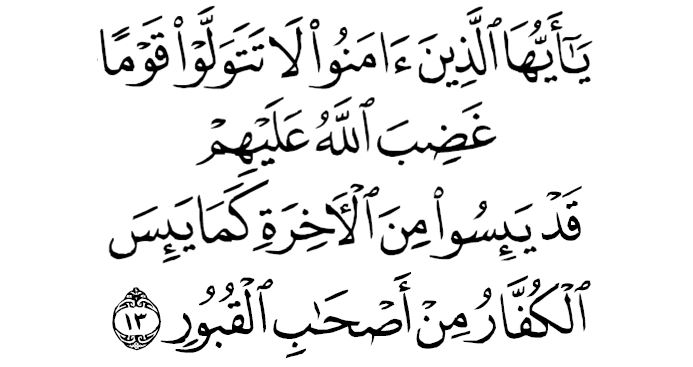 يَـٰٓأَيُّهَا ٱلَّذِينَ ءَامَنُوا۟ لَا تَتَوَلَّوْا۟ قَوْمًا
غَضِبَ ٱللَّهُ عَلَيْهِمْ
قَدْ يَئِسُوا۟ مِنَ ٱلْـَٔاخِرَةِ كَمَا يَئِسَ
ٱلْكُفَّارُ مِنْ أَصْحَـٰبِ ٱلْقُبُورِ ١٣